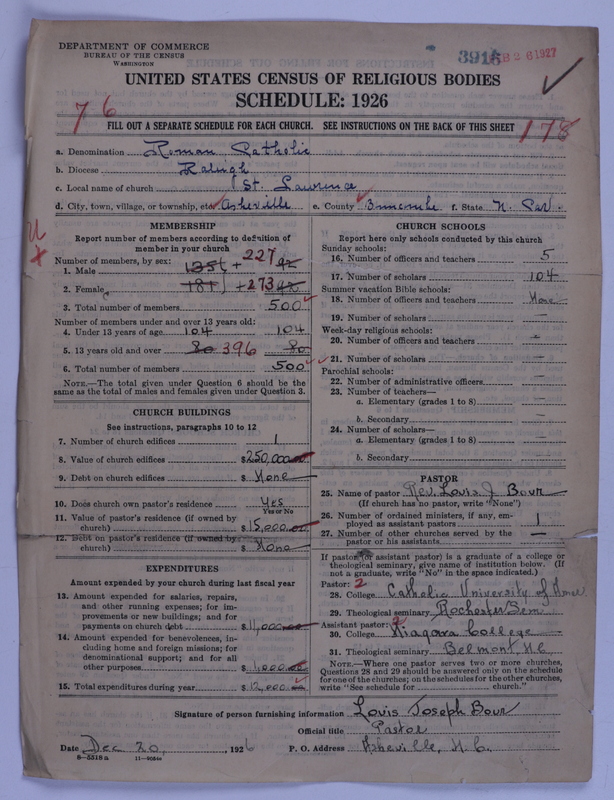 DEPARTMENT OF COMMERCE
BUREAU OF THE CENSUS
WASHINGTON
3915
FEB 26 1927
UNITED STATES CENSUS OF RELIGIOUS BODIES
SCHEDULE: 1926
76
178
FILL OUT A SEPARATE SCHEDULE FOR EACH CHURCH. SEE INSTRUCTIONS ON THE BACK OF THIS SHEET
a. Denomination Roman Catholic
b. Diocese Raleigh
c. Local name of church St. Lawrence
d. City, town, village, or township, etc. Asheville e. County Buncombe f. State N. Car.
MEMBERSHIP
Report number of members according to definition of
member in your church
Number of members, by sex:
1. Male 135 + 227 92
2. Female 181 + 273 92
3. Total number of members 500
Number of members under and over 13 years old:
4. Under 13 years of age 104 104
5. 13 years old and over 80 396 80
6. Total number of members 500
NOTE.—The total given under Question 6 should be the
same as the total of males and females given under Question 3.
CHURCH BUILDINGS
See instructions, paragraphs 10 to 12
7. Number of church edifices 1
8. Value of church edifices $250,000.00
9. Debt on church edifices $ None
10. Does church own pastor's residence Yes
Yes or No
11. Value of pastor's residence (if owned by
church) $15,000.00
12. Debt on pastor's residence (if owned by
church) $ None
EXPENDITURES
Amount expended by your church during last fiscal year
13. Amount expended for salaries, repairs,
and other running expenses; for im-
provements or new buildings; and for
payments on church debt $11,000
14. Amount expended for benevolences, in-
cluding home and foreign missions; for
denominational support; and for all
other purposes $1,000.00
15. Total expenditures during year $12,000.00
CHURCH SCHOOLS
Report here only schools conducted by this church
Sunday schools:
16. Number of officers and teachers 5
17. Number of scholars 104
Summer vacation Bible schools:
18. Number of officers and teachers None
19. Number of scholars —
Week-day religious schools:
20. Number of officers and teachers —
21. Number of scholars —
Parochial schools:
22. Number of administrative officers —
23. Number of teachers—
a. Elementary (grades 1 to 8) —
b. Secondary —
24. Number of scholars—
a. Elementary (grades 1 to 8) —
b. Secondary —
PASTOR
25. Name of pastor Rev. Louis J Bour
(If church has no pastor, write "None")
26. Number of ordained ministers, if any, em-
ployed as assistant pastors 1
27. Number of other churches served by the
pastor or his assistants —
If pastor (or assistant pastor) is a graduate of a college or
theological seminary, give name of institution below. (If
not a graduate, write "No" in the space indicated.)
Pastor: 2
28. College Catholic University of Amer
29. Theological seminary Rochester Sem.
Assistant pastor: 2
30. College Niagara College
31. Theological seminary Belmont N.C.
NOTE.—Where one pastor serves two or more churches,
Questions 28 and 29 should be answered only on the schedule
for one of the churches; on the schedules for the other churches,
write "See schedule for ........ church."
Signature of person furnishing information Louis Joseph Bour
Official title Pastor
Date Dec 20, 1926 P. O. Address Asheville, N.C.
8—5518a 11—9056